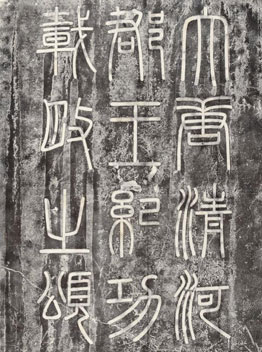 大唐清河
郡王紀功
載政之頌